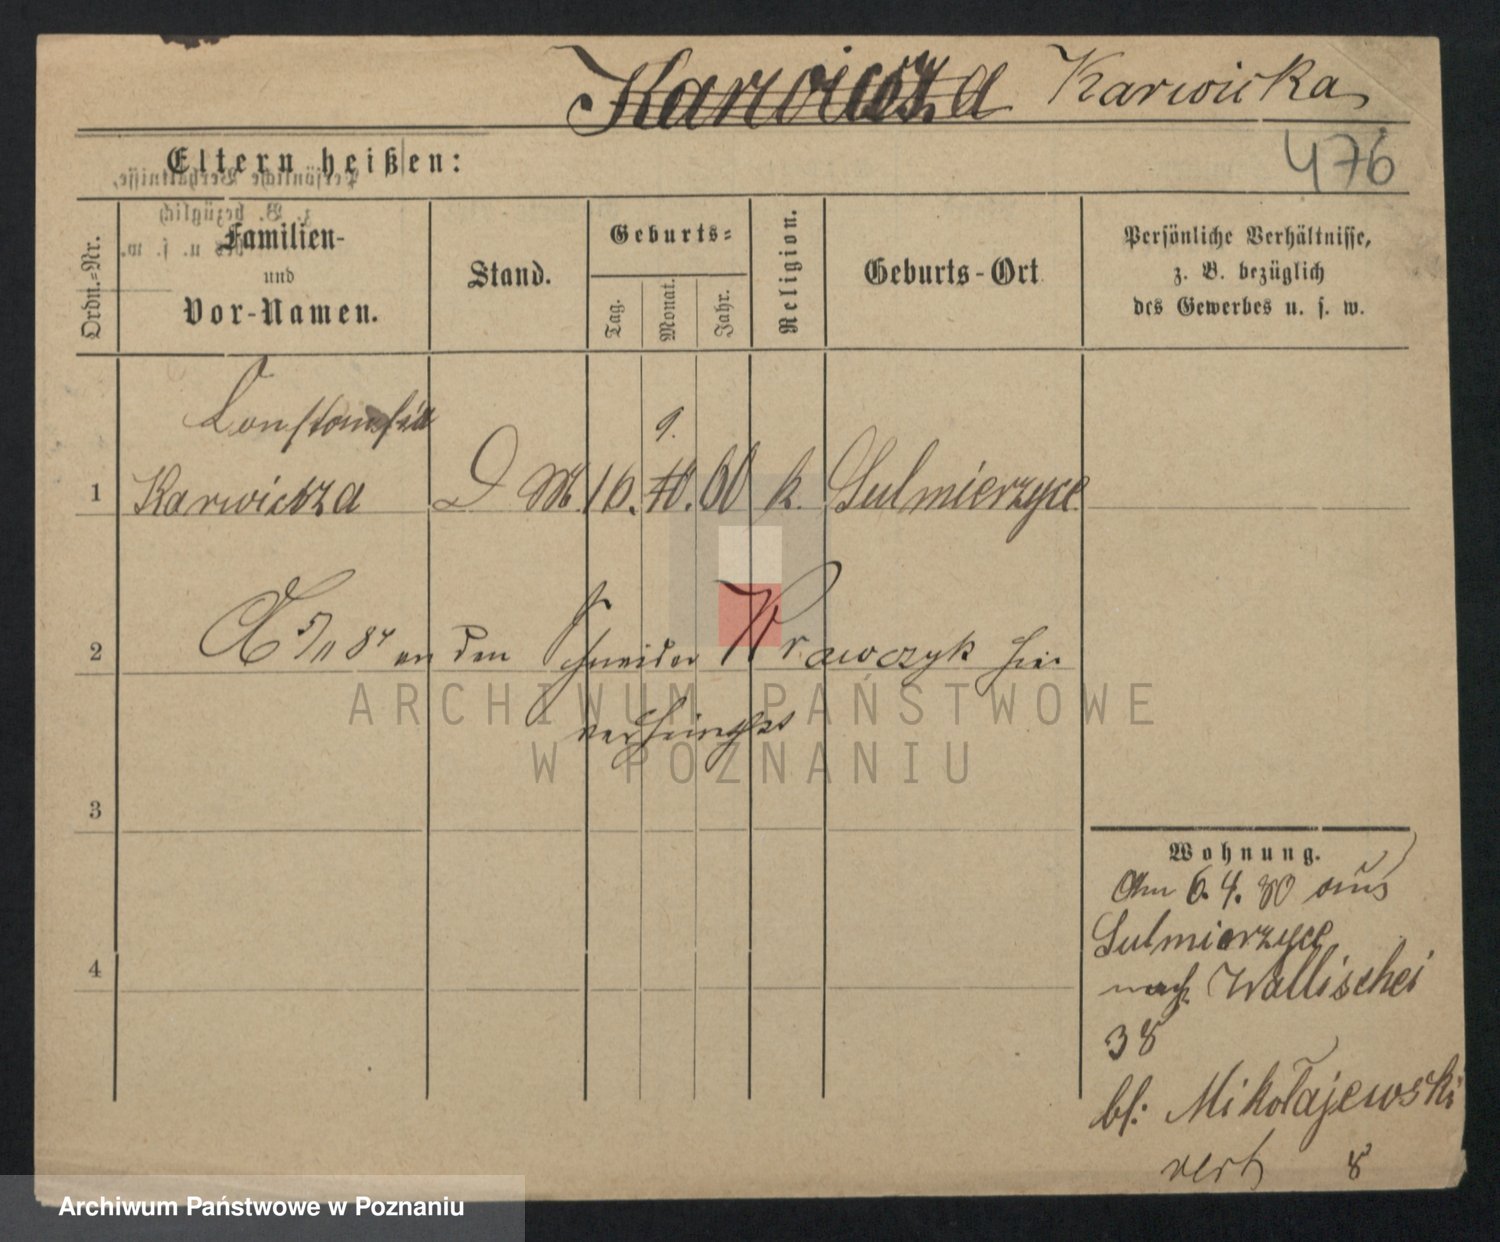 Karwicka
476
Eltern heißen:
Ordn.-Nr.
Familien-
und
Vor-Namen.
Stand.
Geburts-
Tag.
Monat.
Jahr.
Religion.
Geburts-Ort
Persönliche Verhältnisse,
z. B. bezüglich
des Gewerbes u. s. w.
9.
1 Karwicksza D M. 16. 10. 60 k. Sulmierzyce
2 5/11 84 an den Schneider Krawczyk hier
ARCHIWUM PAŃSTWOWE
W POZNANIU
3
Wohnung.
Am 6.4.80 aus
Sulmierzyce
4
nach Wallischei
38
bf: Mikołajewski
8
Archiwum Państwowe w Poznaniu